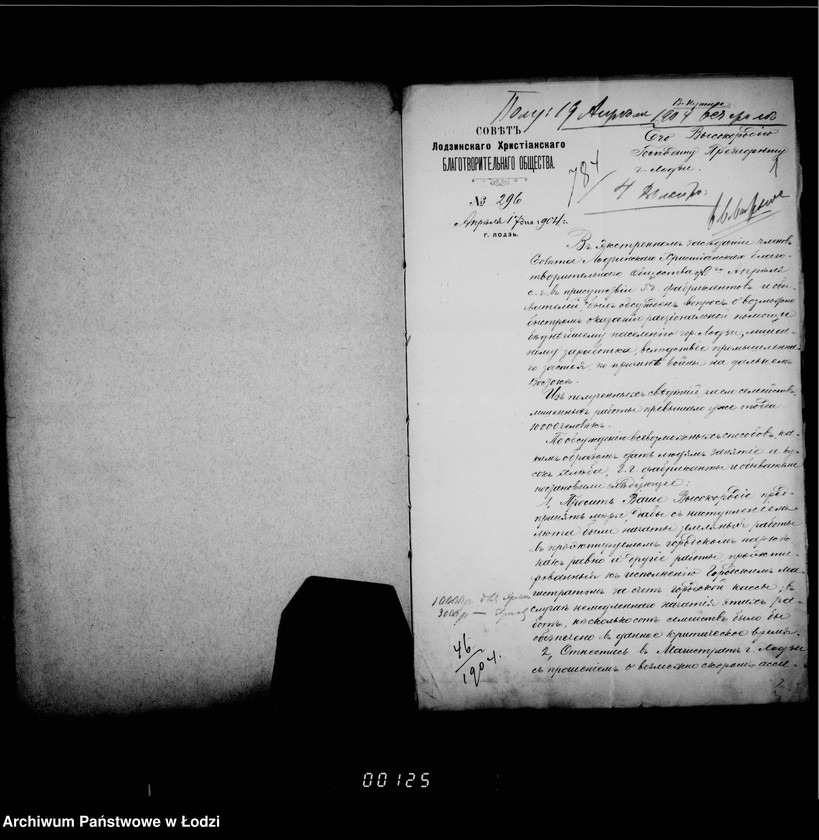 Полу: 19 Апреля 1904
СОВѢТЪ
Лодзинскаго Христіанскаго
БЛАГОТВОРИТЕЛЬНАГО ОБЩЕСТВА.
№ 296
Апрѣля 17 дня 1904 г.
г. ЛОДЗЬ.
Его Высокородію
Господину Президенту
г. Лодзи.
784
4
Въ экстренномъ засѣданіи членовъ
Совѣта Лодзинскаго Христіанскаго благо-
творительнаго общества Апрѣля
с. г. въ присутствіи фабрикантовъ и обы-
вателей, былъ обсужденъ вопросъ о возможно
быстромъ оказаніи раціональной помощи
бѣднѣйшему населенію гор. Лодзи, лишен-
ному заработка, вслѣдствіе промышленна-
го застоя, по причинѣ войны на дальнемъ
Востокѣ.
Изъ полученныхъ свѣдѣній, число семействъ,
лишенныхъ работы превышало уже тогда
10000 человѣкъ.
По обсужденіи всевозможныхъ способовъ, ка-
кимъ образомъ дать людямъ занятіе и ку-
сокъ хлѣба, г. г. фабриканты и обыватели
постановили слѣдующее:
1, Просить Ваше Высокородіе пред-
принять мѣры, дабы съ наступленіемъ
лѣта были начаты земляныя работы
въ проэктируемомъ городскомъ паркѣ
какъ равно и другія работы проэкти-
рованныя къ исполненію Городскимъ Ма-
гистратомъ за счетъ городской кассы; въ
случаѣ немедленнаго начатія этихъ ра-
ботъ, нѣсколько сотъ семействъ было бы
обезпечено въ данное критическое время.
2, Отнестись въ Магистратъ г. Лодзи
съ прошеніемъ о возможно скорой ассиг-
10000 р.
3000 р —
46
1904.
00125
Archiwum Państwowe w Łodzi